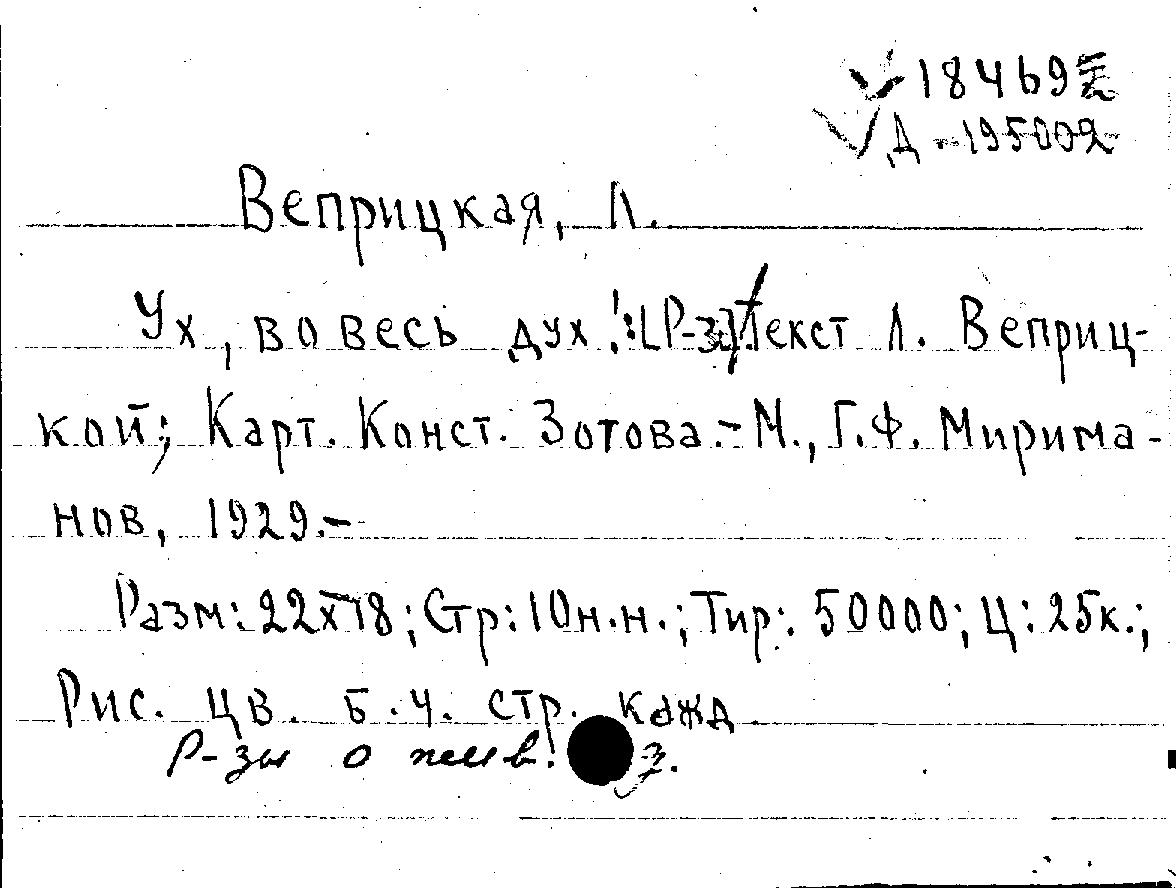 18469
Д-195002
Веприцкая, Л.
Ух, во весь дух!: [Р-з] / Текст Л. Веприц-
кой; Карт. Конст. Зотова.- М., Г.Ф. Мирима-
нов, 1929.-
Разм: 22х18; Стр: 10н.н.; Тир: 50000; Ц: 25к.;
Рис. цв. б.ч. стр. кажд
Р-зы о